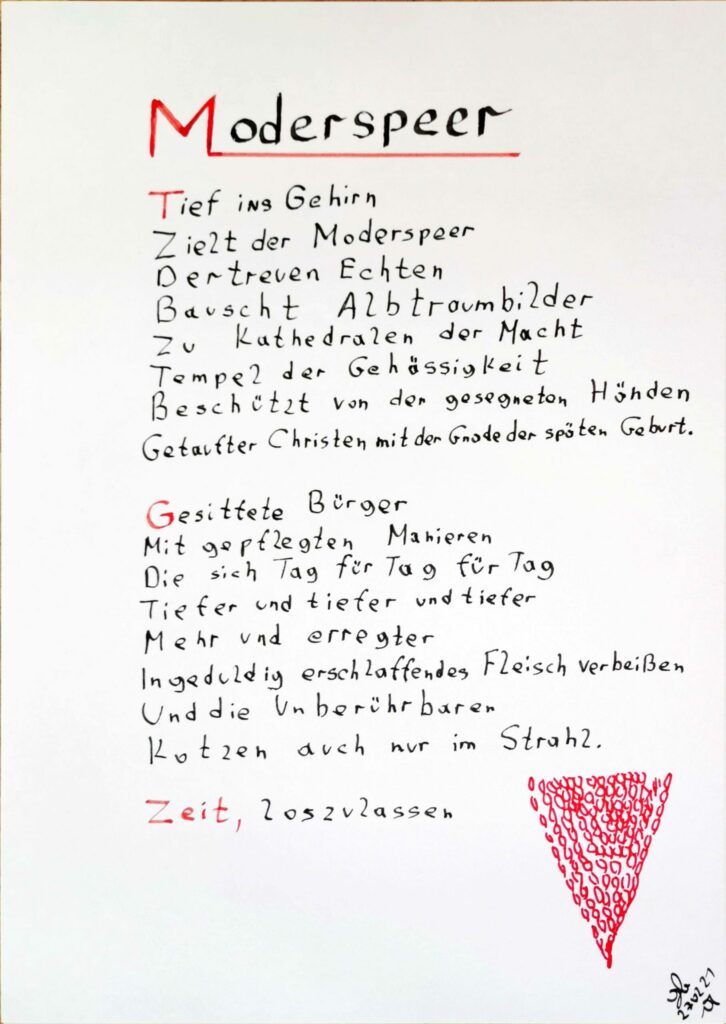 Moderspeer
Tief ins Gehirn
Zielt der Moderspeer
Der treuen Echten
Bauscht Albtraumbilder
Zu Kathedralen der Macht
Tempel der Gehässigkeit
Beschützt von den gesegneten Händen
Getaufter Christen mit der Gnade der späten Geburt.
Gesittete Bürger
Mit gepflegten Manieren
Die sich Tag für Tag für Tag
Tiefer und tiefer und tiefer
Mehr und erregter
In geduldig erschlaffendes Fleisch verbeißen
Und die Unberührbaren
Kotzen auch nur im Strahl.
Zeit, loszulassen
270221